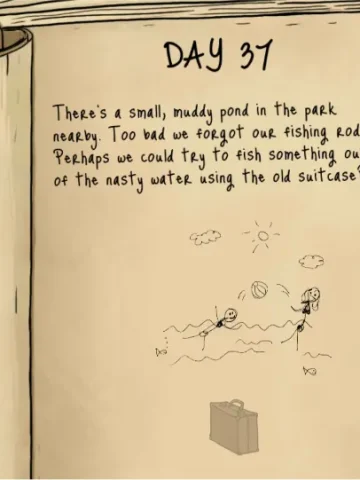 DAY 37
There's a small, muddy pond in the park
nearby. Too bad we forgot our fishing rod
Perhaps we could try to fish something ou
of the nasty water using the old suitcase?